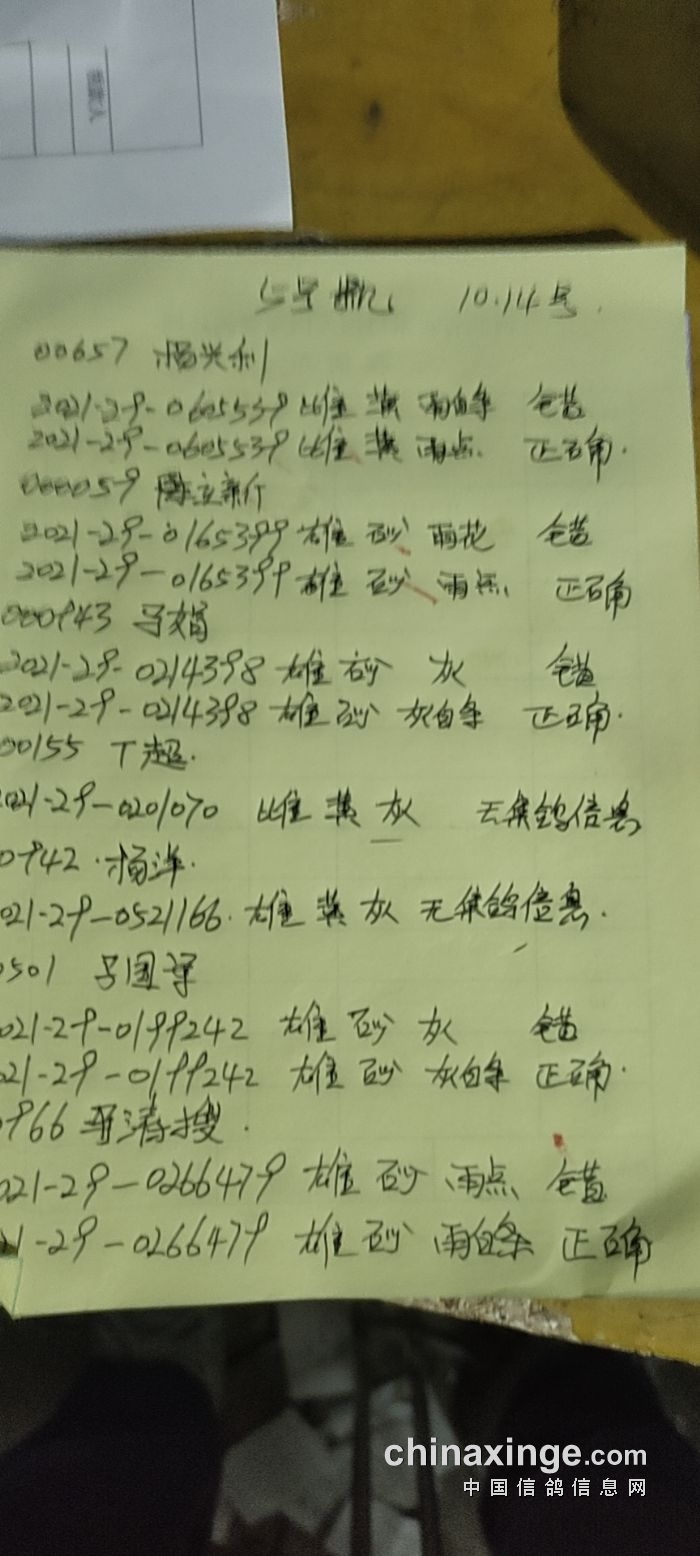 号机 10.14号.
00657 杨兴利
2021-29-0605539 雌 黄 雨白条 错
2021-29-0605539 雌 黄 雨点. 正确.
000059 陈立新
2021-29-0165399 雄 砂 雨花 错
2021-29-0165399 雄 砂 雨点 正确
000943 马娟
2021-29-0214398 雄 砂 灰 错
2021-29-0214398 雄 砂 灰白条 正确.
00155 丁超.
021-29-0201070 雌 黄 灰 无集鸽信息
0942.杨洋.
021-29-0521166. 雄 黄 灰 无集鸽信息.
0501 马国
021-29-0199242 雄 砂 灰 错
021-29-0199242 雄 砂 灰白条 正确.
0966
021-29-0266479 雄 砂 雨点 错
21-29-0266479 雄 砂 雨白条 正确
chinaxinge.com
中国信鸽信息网